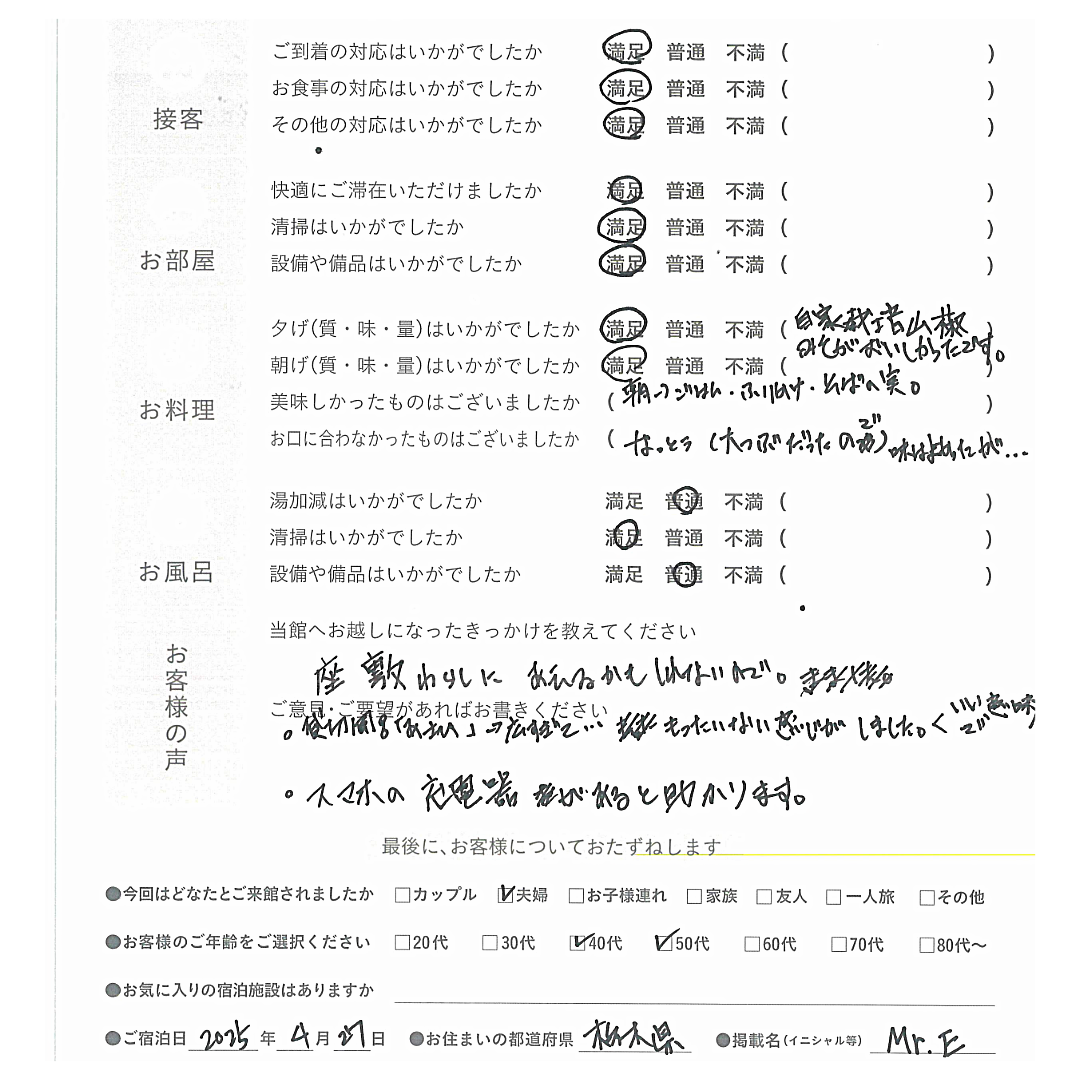 接客
ご到着の対応はいかがでしたか 満足 普通 不満 ( )
お食事の対応はいかがでしたか 満足 普通 不満 ( )
その他の対応はいかがでしたか 満足 普通 不満 ( )
お部屋
快適にご滞在いただけましたか 満足 普通 不満 ( )
清掃はいかがでしたか 満足 普通 不満 ( )
設備や備品はいかがでしたか 満足 普通 不満 ( )
お料理
夕げ(質・味・量)はいかがでしたか 満足 普通 不満 ( 自家栽培山椒 )
みそがおいしかったです。
朝げ(質・味・量)はいかがでしたか 満足 普通 不満
美味しかったものはございましたか ( 朝→ごはん・ふりかけ・そばの実。 )
お口に合わなかったものはございましたか ( なっとう (大つぶだったので) 味はよかったが…
お風呂
湯加減はいかがでしたか 満足 普通 不満 ( )
清掃はいかがでしたか 満足 普通 不満 ( )
設備や備品はいかがでしたか 満足 普通 不満 ( )
お客様の声
当館へお越しになったきっかけを教えてください
座敷わらしに あえるかもしれないので。
ご意見・ご要望があればお書きください
。貸切 →広すぎて… もったいない感じがしました。くいい意味で
。スマホの充電器 があると助かります。
最後に、お客様についておたずねします
●今回はどなたとご来館されましたか □カップル ☑夫婦 □お子様連れ □家族 □友人 □一人旅 □その他
●お客様のご年齢をご選択ください □20代 □30代 ☑40代 ☑50代 □60代 □70代 □80代〜
●お気に入りの宿泊施設はありますか
●ご宿泊日 2025 年 4 月 27 日 ●お住まいの都道府県 栃木県 ●掲載名(イニシャル等) Mr. E